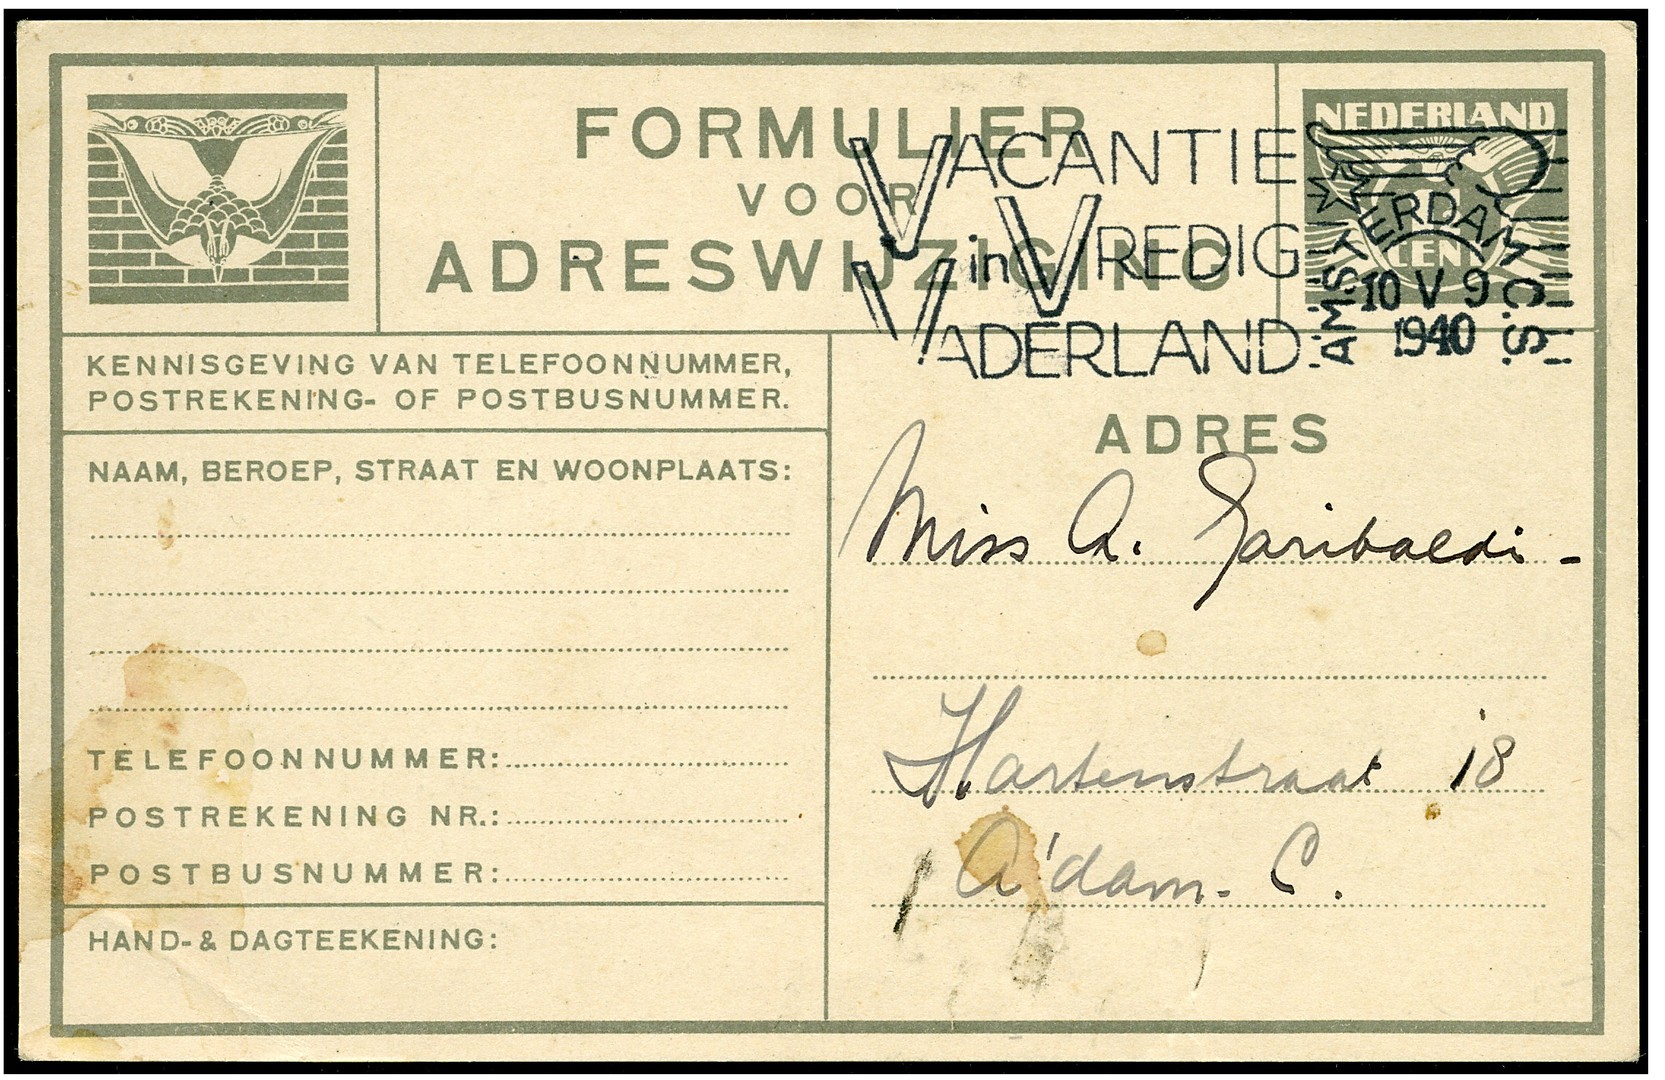 FORMULIER
VOOR
ADRESWIJZIGING
NEDERLAND
CENT
VACANTIE
in VREDIG
VADERLAND.
AMSTERDAM C.S.
10 V 9
1940
KENNISGEVING VAN TELEFOONNUMMER,
POSTREKENING- OF POSTBUSNUMMER.
NAAM, BEROEP, STRAAT EN WOONPLAATS:
TELEFOONNUMMER:
POSTREKENING NR.:
POSTBUSNUMMER:
HAND- & DAGTEEKENING:
ADRES
Miss A. Garibaldi -
Hartenstraat 18
A'dam - C.